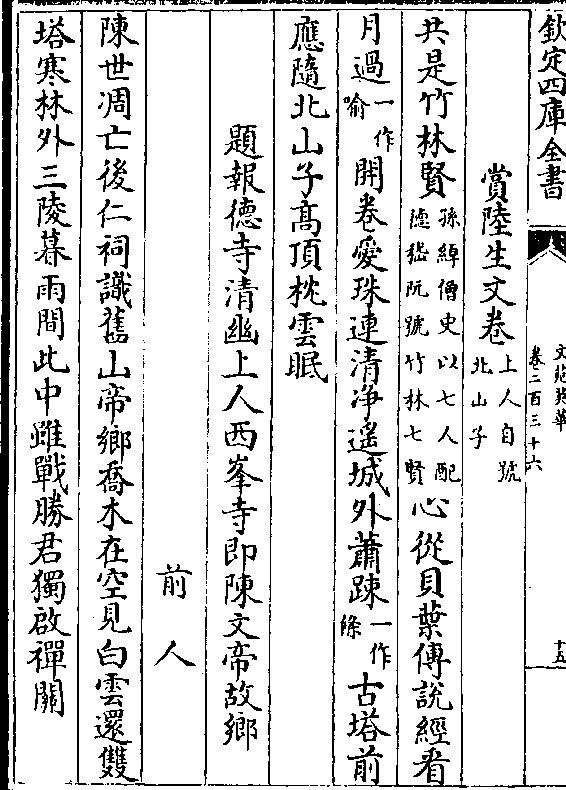 欽定四庫全書
文苑英華
卷二百三十六
十五
賞陸生文卷上人自號北山子
共是竹林賢孫綽僧史以七人配嵇阮號竹林七賢心從貝葉傳說經看
月過一作喻開卷愛珠連清净遥城外蕭踈一作條古塔前
應隨北山子高頂枕雲眠
題報德寺清幽上人西峯寺即陳文帝故鄉
前人
陳世凋亡後仁祠識舊山帝鄉喬木在空見白雲還雙
塔寒林外三陵暮雨間此中雖戰勝君獨啟禪關